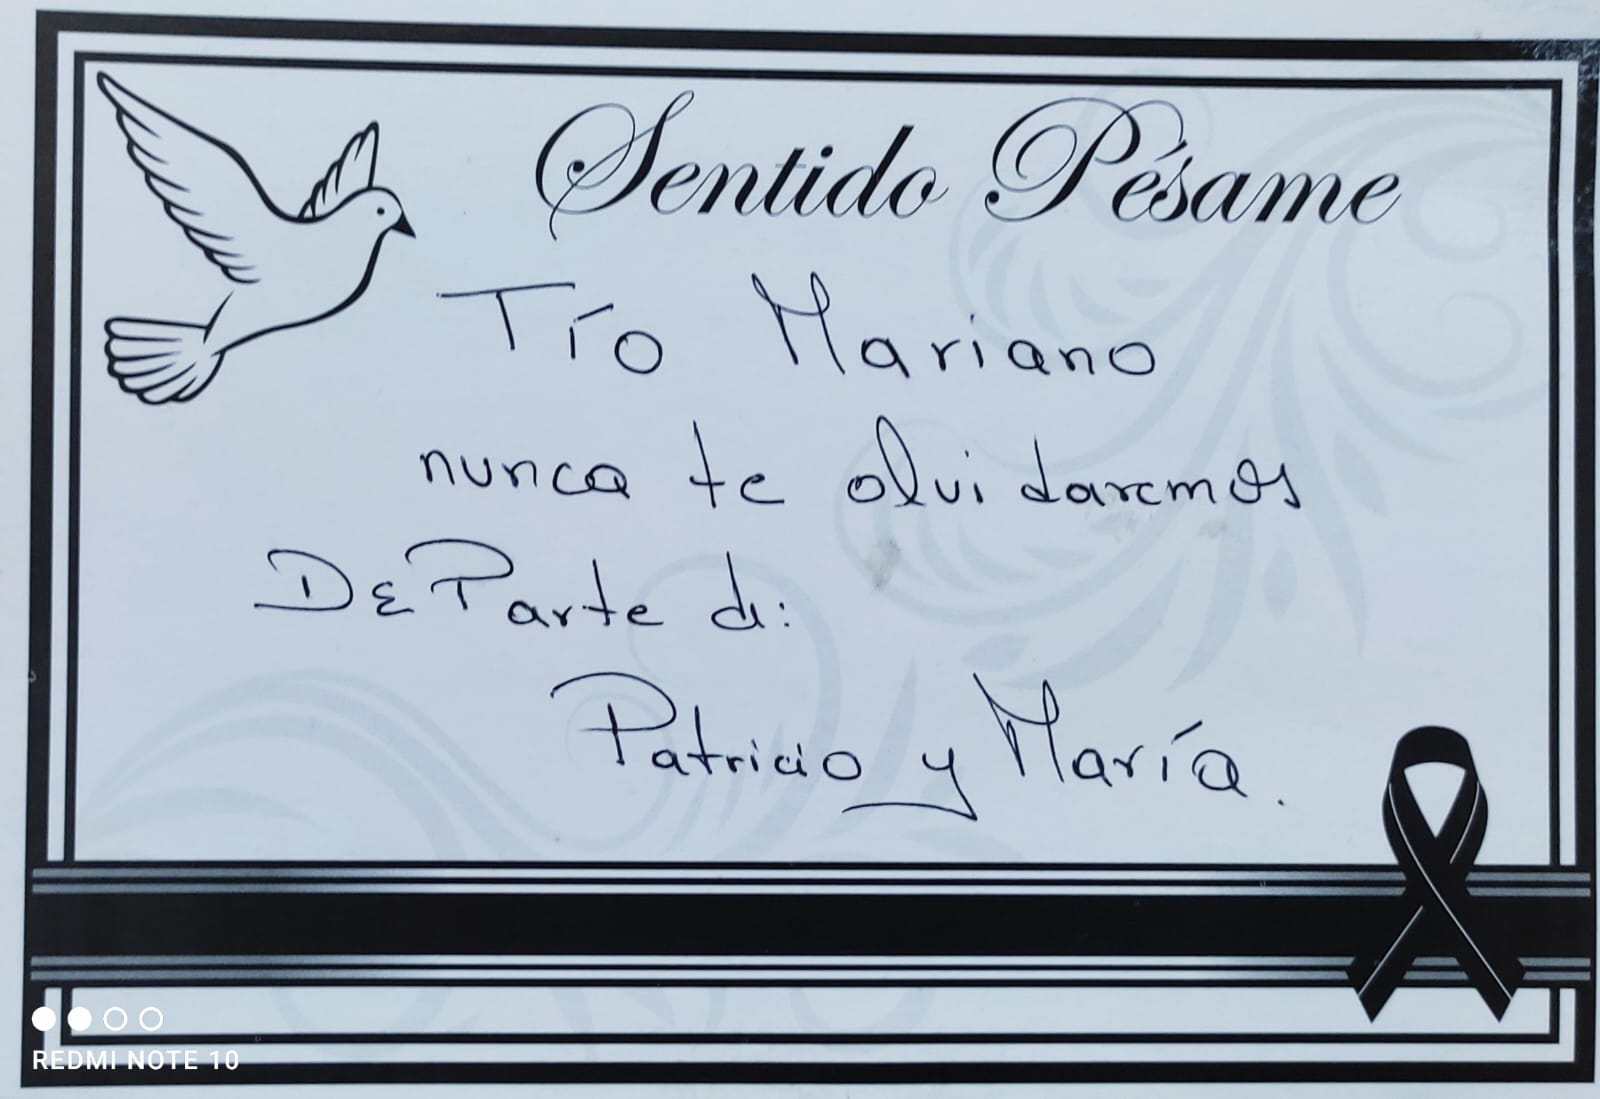 Sentido Pésame
Tío Mariano
nunca te olvidaremos
De Parte de:
Patricio y María.
REDMI NOTE 10